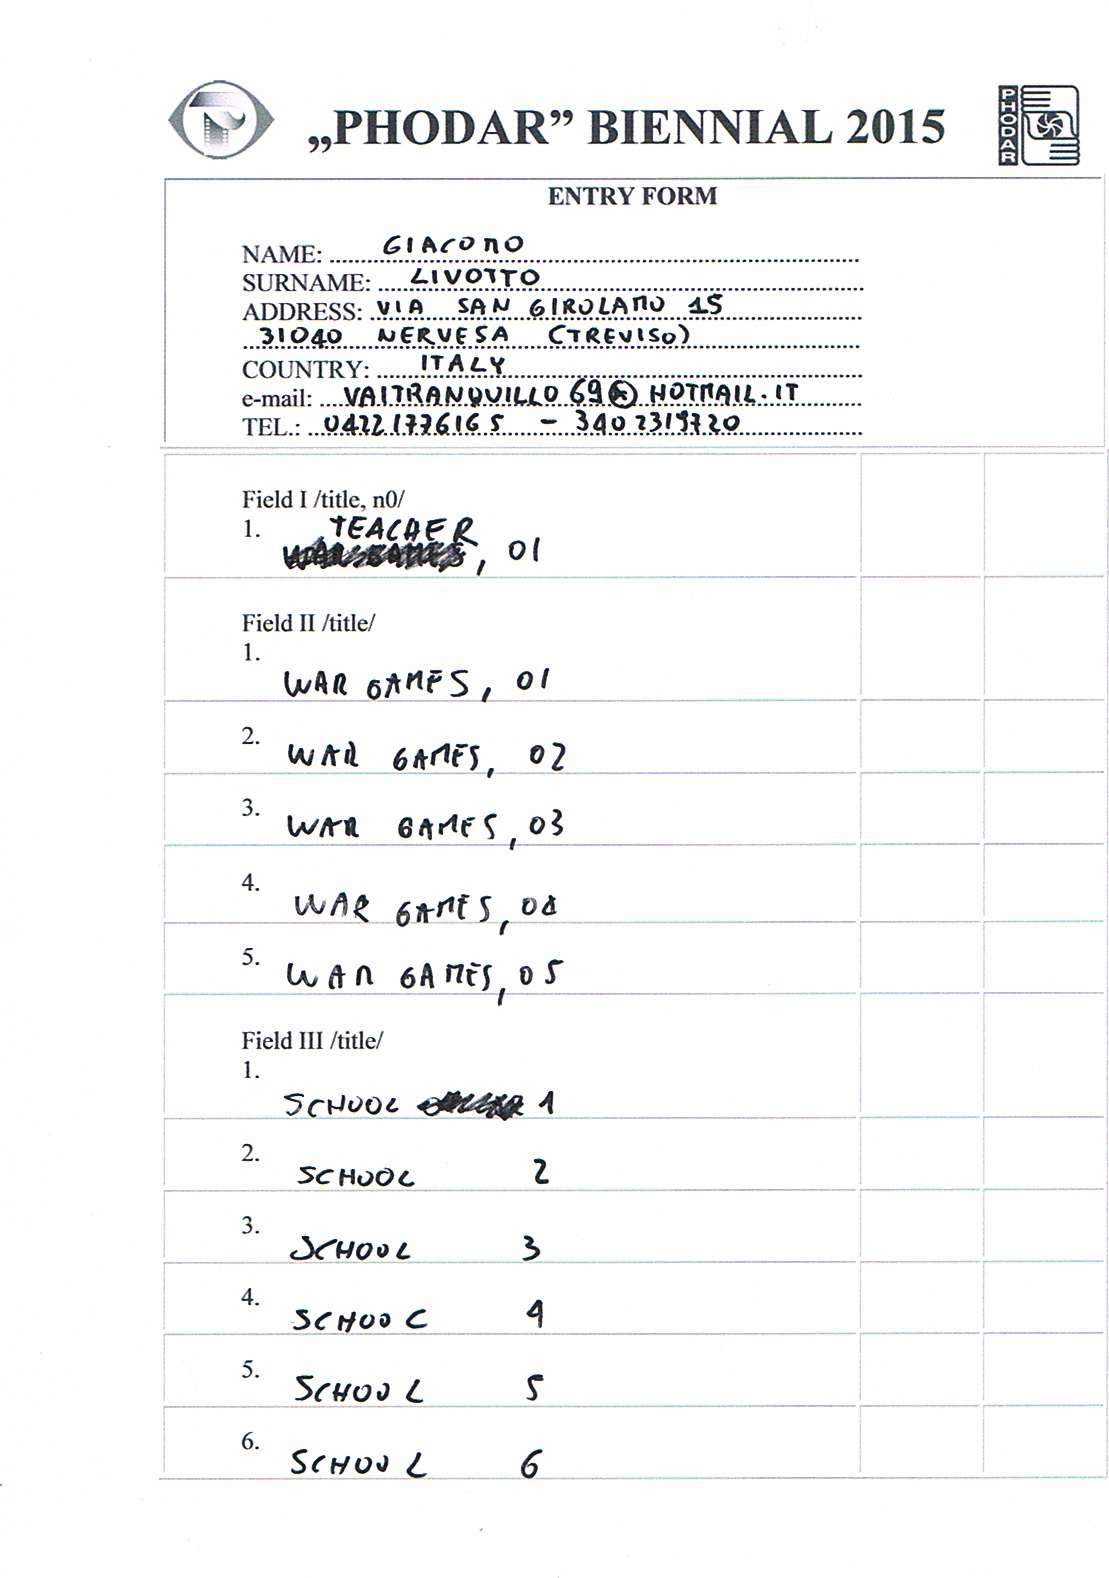 „PHODAR” BIENNIAL 2015
PHODAR
ENTRY FORM
NAME: GIACOMO
SURNAME: LIVOTTO
ADDRESS: VIA SAN GIROLAMO 15
31040 NERVESA (TREVISO)
COUNTRY: ITALY
e-mail: VAITRANQUILLO69@HOTMAIL.IT
TEL.: 04221776165 - 3402319720
Field I /title, n0/
1. TEACHER
, 01
Field II /title/
1.
WAR GAMES, 01
2. WAR GAMES, 02
3. WAR GAMES, 03
4. WAR GAMES, 04
5. WAR GAMES, 05
Field III /title/
1.
SCHOOL 1
2. SCHOOL 2
3. SCHOOL 3
4. SCHOOL 4
5. SCHOOL 5
6. SCHOOL 6